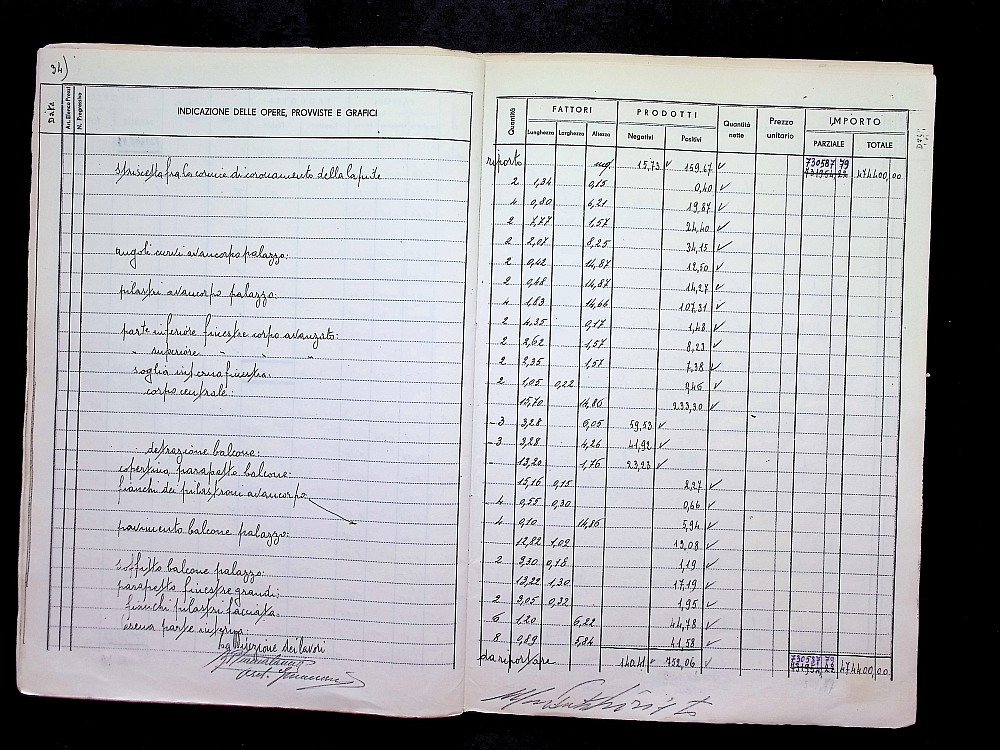 34)
Data
Art. Elenco Prezzi
N. Progressivo
INDICAZIONE DELLE OPERE, PROVVISTE E GRAFICI
striscetta fra la cornice di coronamento della lapide
angoli curvi avancorpo palazzo:
pilastri avancorpo palazzo:
parte inferiore finestre corpo avanzato:
" superiore " " "
soglia interna finestra:
corpo centrale:
detrazione balcone:
copertina parapetto balcone:
fianchi dei pilastroni avancorpo
pavimento balcone palazzo:
soffitto balcone palazzo:
parapetto finestre grandi:
fianchi pilastri facciata:
lesena parte interna:
La Direzione dei lavori
Quantità FATTORI PRODOTTI Quantità nette Prezzo unitario IMPORTO
Lunghezza Larghezza Altezza Negativi Positivi PARZIALE TOTALE
riporto mq. 15,73 159,67 730587 79 474400,00
731954,22
2 1,34 0,15 0,40
4 0,80 6,21 19,87
2 7,77 1,57 24,40
2 2,07 8,25 34,15
2 0,42 14,87 12,50
2 0,48 14,87 14,27
4 1,83 14,66 107,31
2 4,35 0,17 1,48
2 2,62 1,57 8,23
2 2,35 1,57 7,38
2 1,05 0,22 0,46
15,70 14,86 233,30
3 3,28 6,05 59,53
3 3,28 4,26 41,92
13,20 1,76 23,23
15,16 0,15 2,27
4 0,55 0,30 0,66
4 0,10 14,86 5,94
12,82 1,02 13,08
2 3,30 0,18 1,19
13,22 1,30 17,19
2 3,05 0,32 1,95
6 1,20 6,22 44,78
8 0,89 5,84 41,58
da riportare 140,41 752,06 730587 79 474400,00
731954,22